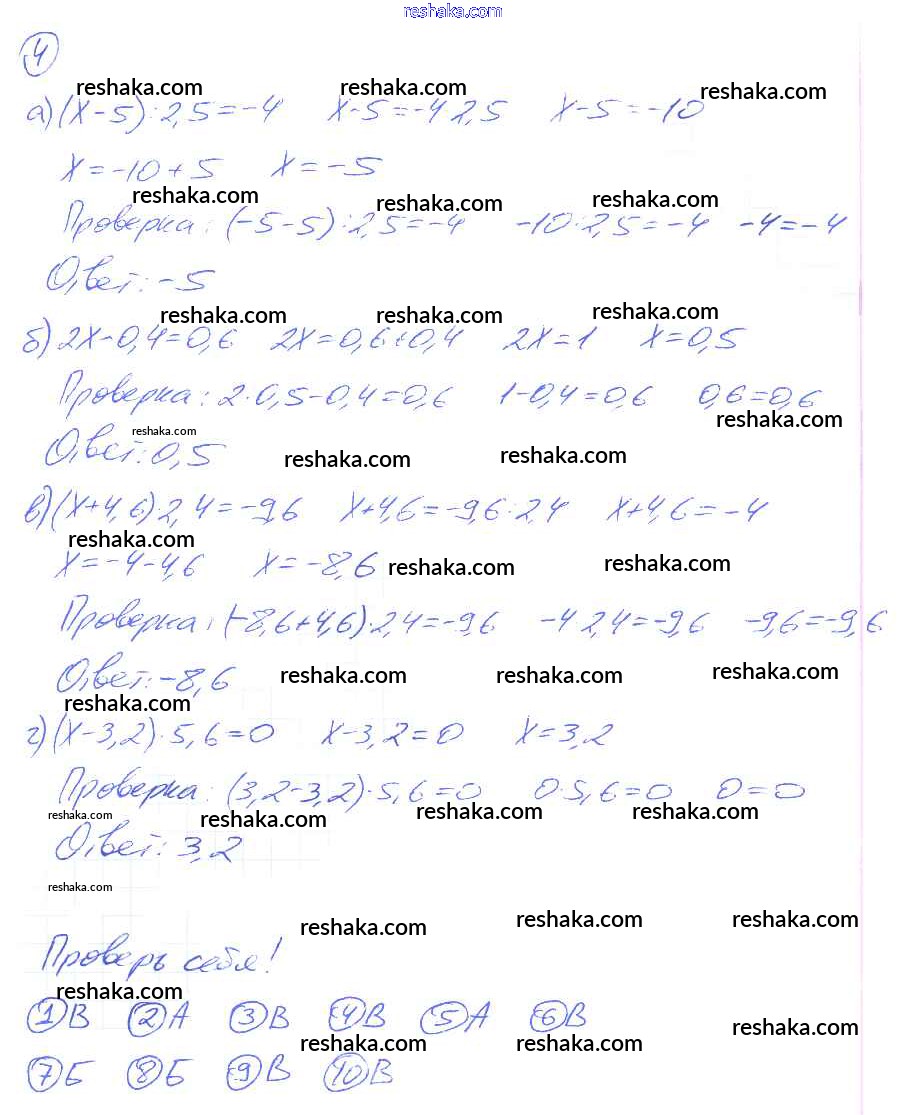 reshaka.com
4
reshaka.com reshaka.com reshaka.com
а) (x-5):2,5=-4 x-5=-4·2,5 x-5=-10
x=-10+5 x=-5
reshaka.com reshaka.com reshaka.com
Проверка: (-5-5):2,5=-4 -10:2,5=-4 -4=-4
Ответ: -5
reshaka.com reshaka.com reshaka.com
б) 2x-0,4=0,6 2x=0,6+0,4 2x=1 x=0,5
Проверка: 2·0,5-0,4=0,6 1-0,4=0,6 0,6=0,6
reshaka.com
reshaka.com
Ответ: 0,5 reshaka.com reshaka.com
в) (x+4,6)·2,4=-9,6 x+4,6=-9,6:2,4 x+4,6=-4
reshaka.com
x=-4-4,6 x=-8,6 reshaka.com reshaka.com
Проверка: (-8,6+4,6)·2,4=-9,6 -4·2,4=-9,6 -9,6=-9,6
Ответ: -8,6 reshaka.com reshaka.com reshaka.com
reshaka.com
г) (x-3,2)·5,6=0 x-3,2=0 x=3,2
Проверка: (3,2-3,2)·5,6=0 0·5,6=0 0=0
reshaka.com reshaka.com reshaka.com reshaka.com
Ответ: 3,2
reshaka.com
reshaka.com reshaka.com reshaka.com
Проверь себя!
reshaka.com
1 В 2 А 3 В 4 В 5 А 6 В reshaka.com
reshaka.com reshaka.com
7 Б 8 Б 9 В 10 В